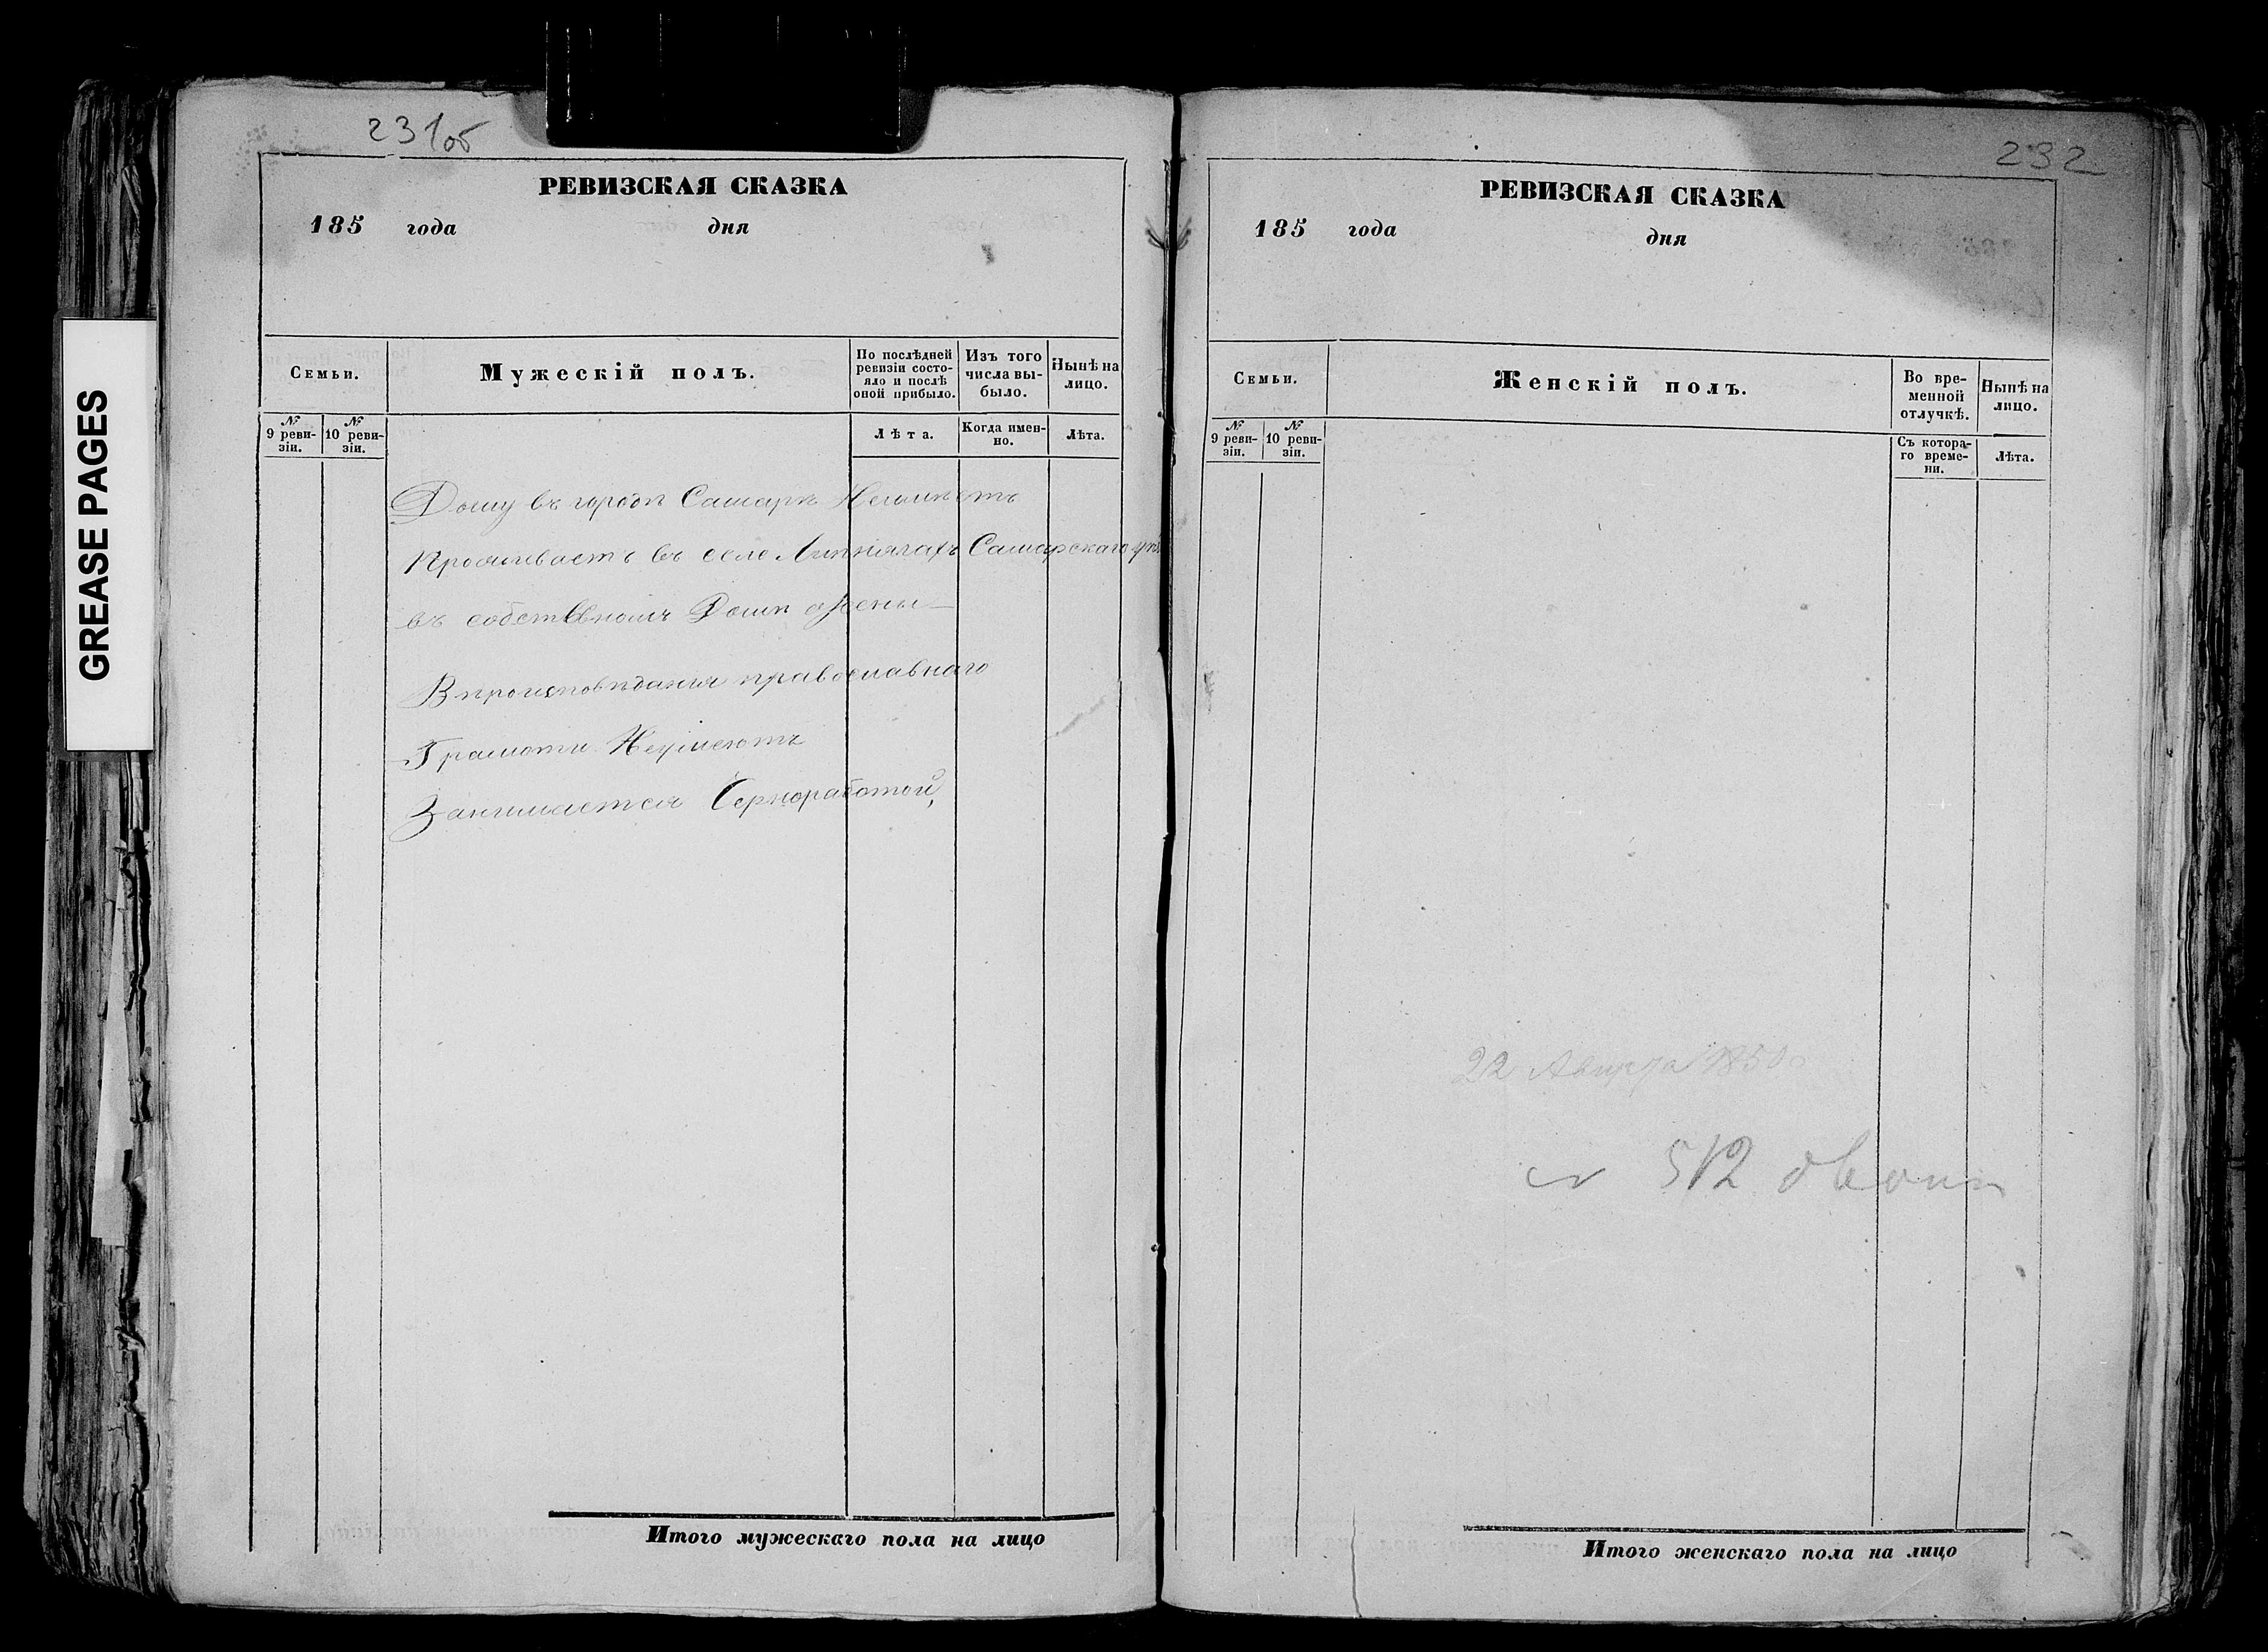 GREASE PAGES
231об
РЕВИЗСКАЯ СКАЗКА
185 года дня
Семьи.
Мужескій полъ.
По послѣдней ревизіи состояло и послѣ оной прибыло.
Изъ того числа выбыло.
Нынѣ на лицо.
№ 9 ревизіи.
№ 10 ревизіи.
Лѣта.
Когда именно.
Лѣта.
Дому въ городѣ Самарѣ Неимѣетъ
Проживаетъ въ селе Липнягахъ Самарскаго
въ собственномъ Домѣ жены
Вѣроисповѣдания православнаго
Грамоти Неумеютъ
Занимается Черноработой,
Итого мужескаго пола на лицо
232
РЕВИЗСКАЯ СКАЗКА
185 года дня
Семьи.
Женскій полъ.
Во временной отлучкѣ.
Нынѣ на лицо.
№ 9 ревизіи.
№ 10 ревизіи.
Съ котораго времени.
Лѣта.
22 1850
512
Итого женскаго пола на лицо